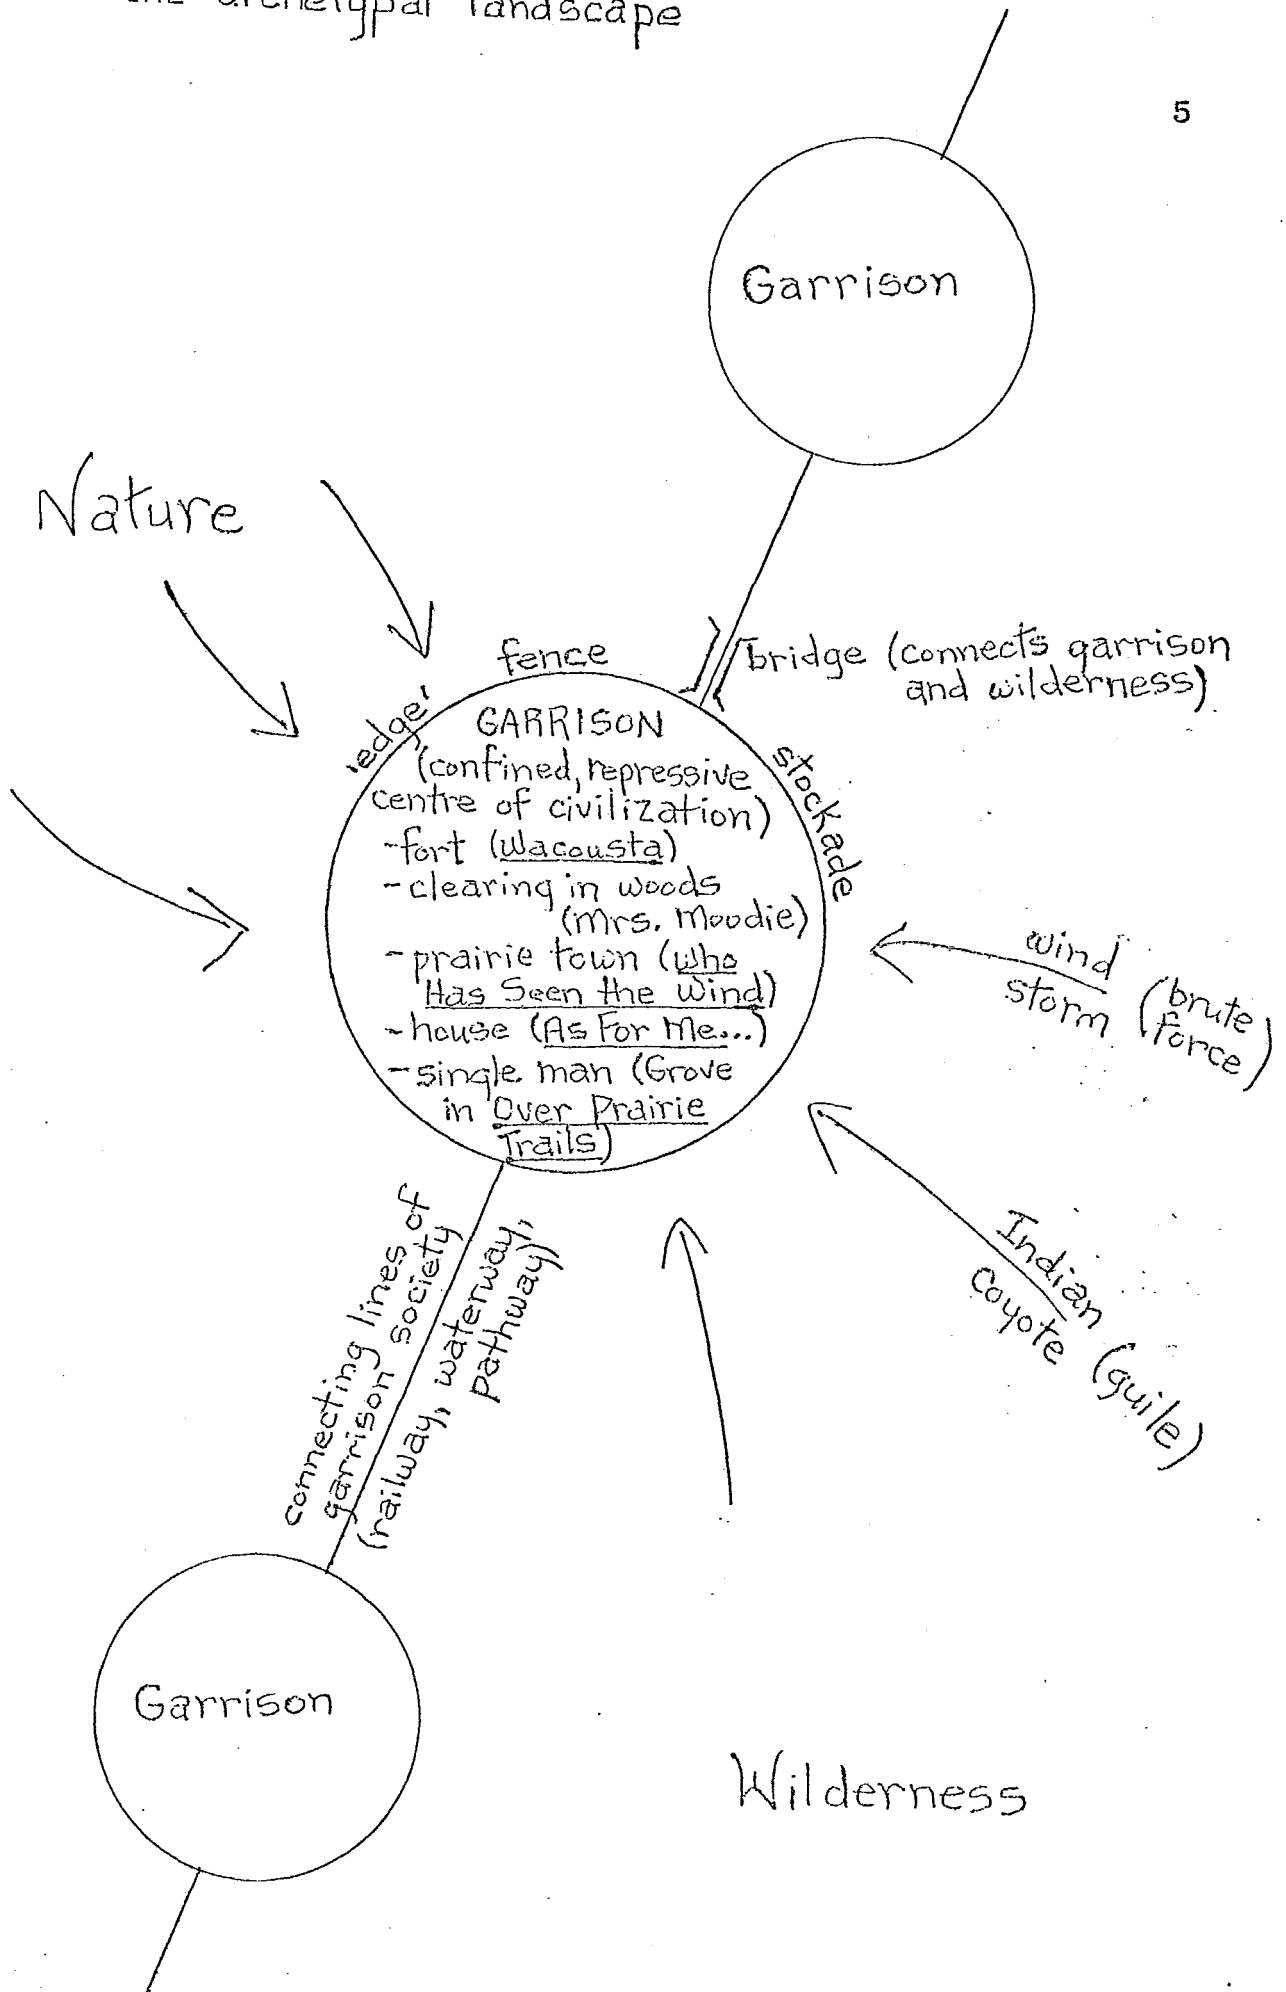 the archetypal landscape
5
Garrison
Nature
fence
bridge (connects garrison
and wilderness)
'edge'
stockade
GARRISON
(confined, repressive
centre of civilization)
-fort (Wacousta)
-clearing in woods
(Mrs. Moodie)
-prairie town (Who
Has Seen the Wind)
-house (As For Me...)
-single man (Grove
in Over Prairie
Trails)
wind
storm
(brute
force)
Indian
coyote
(guile)
connecting lines of
garrison society
(railway, waterway,
pathway)
Garrison
Wilderness